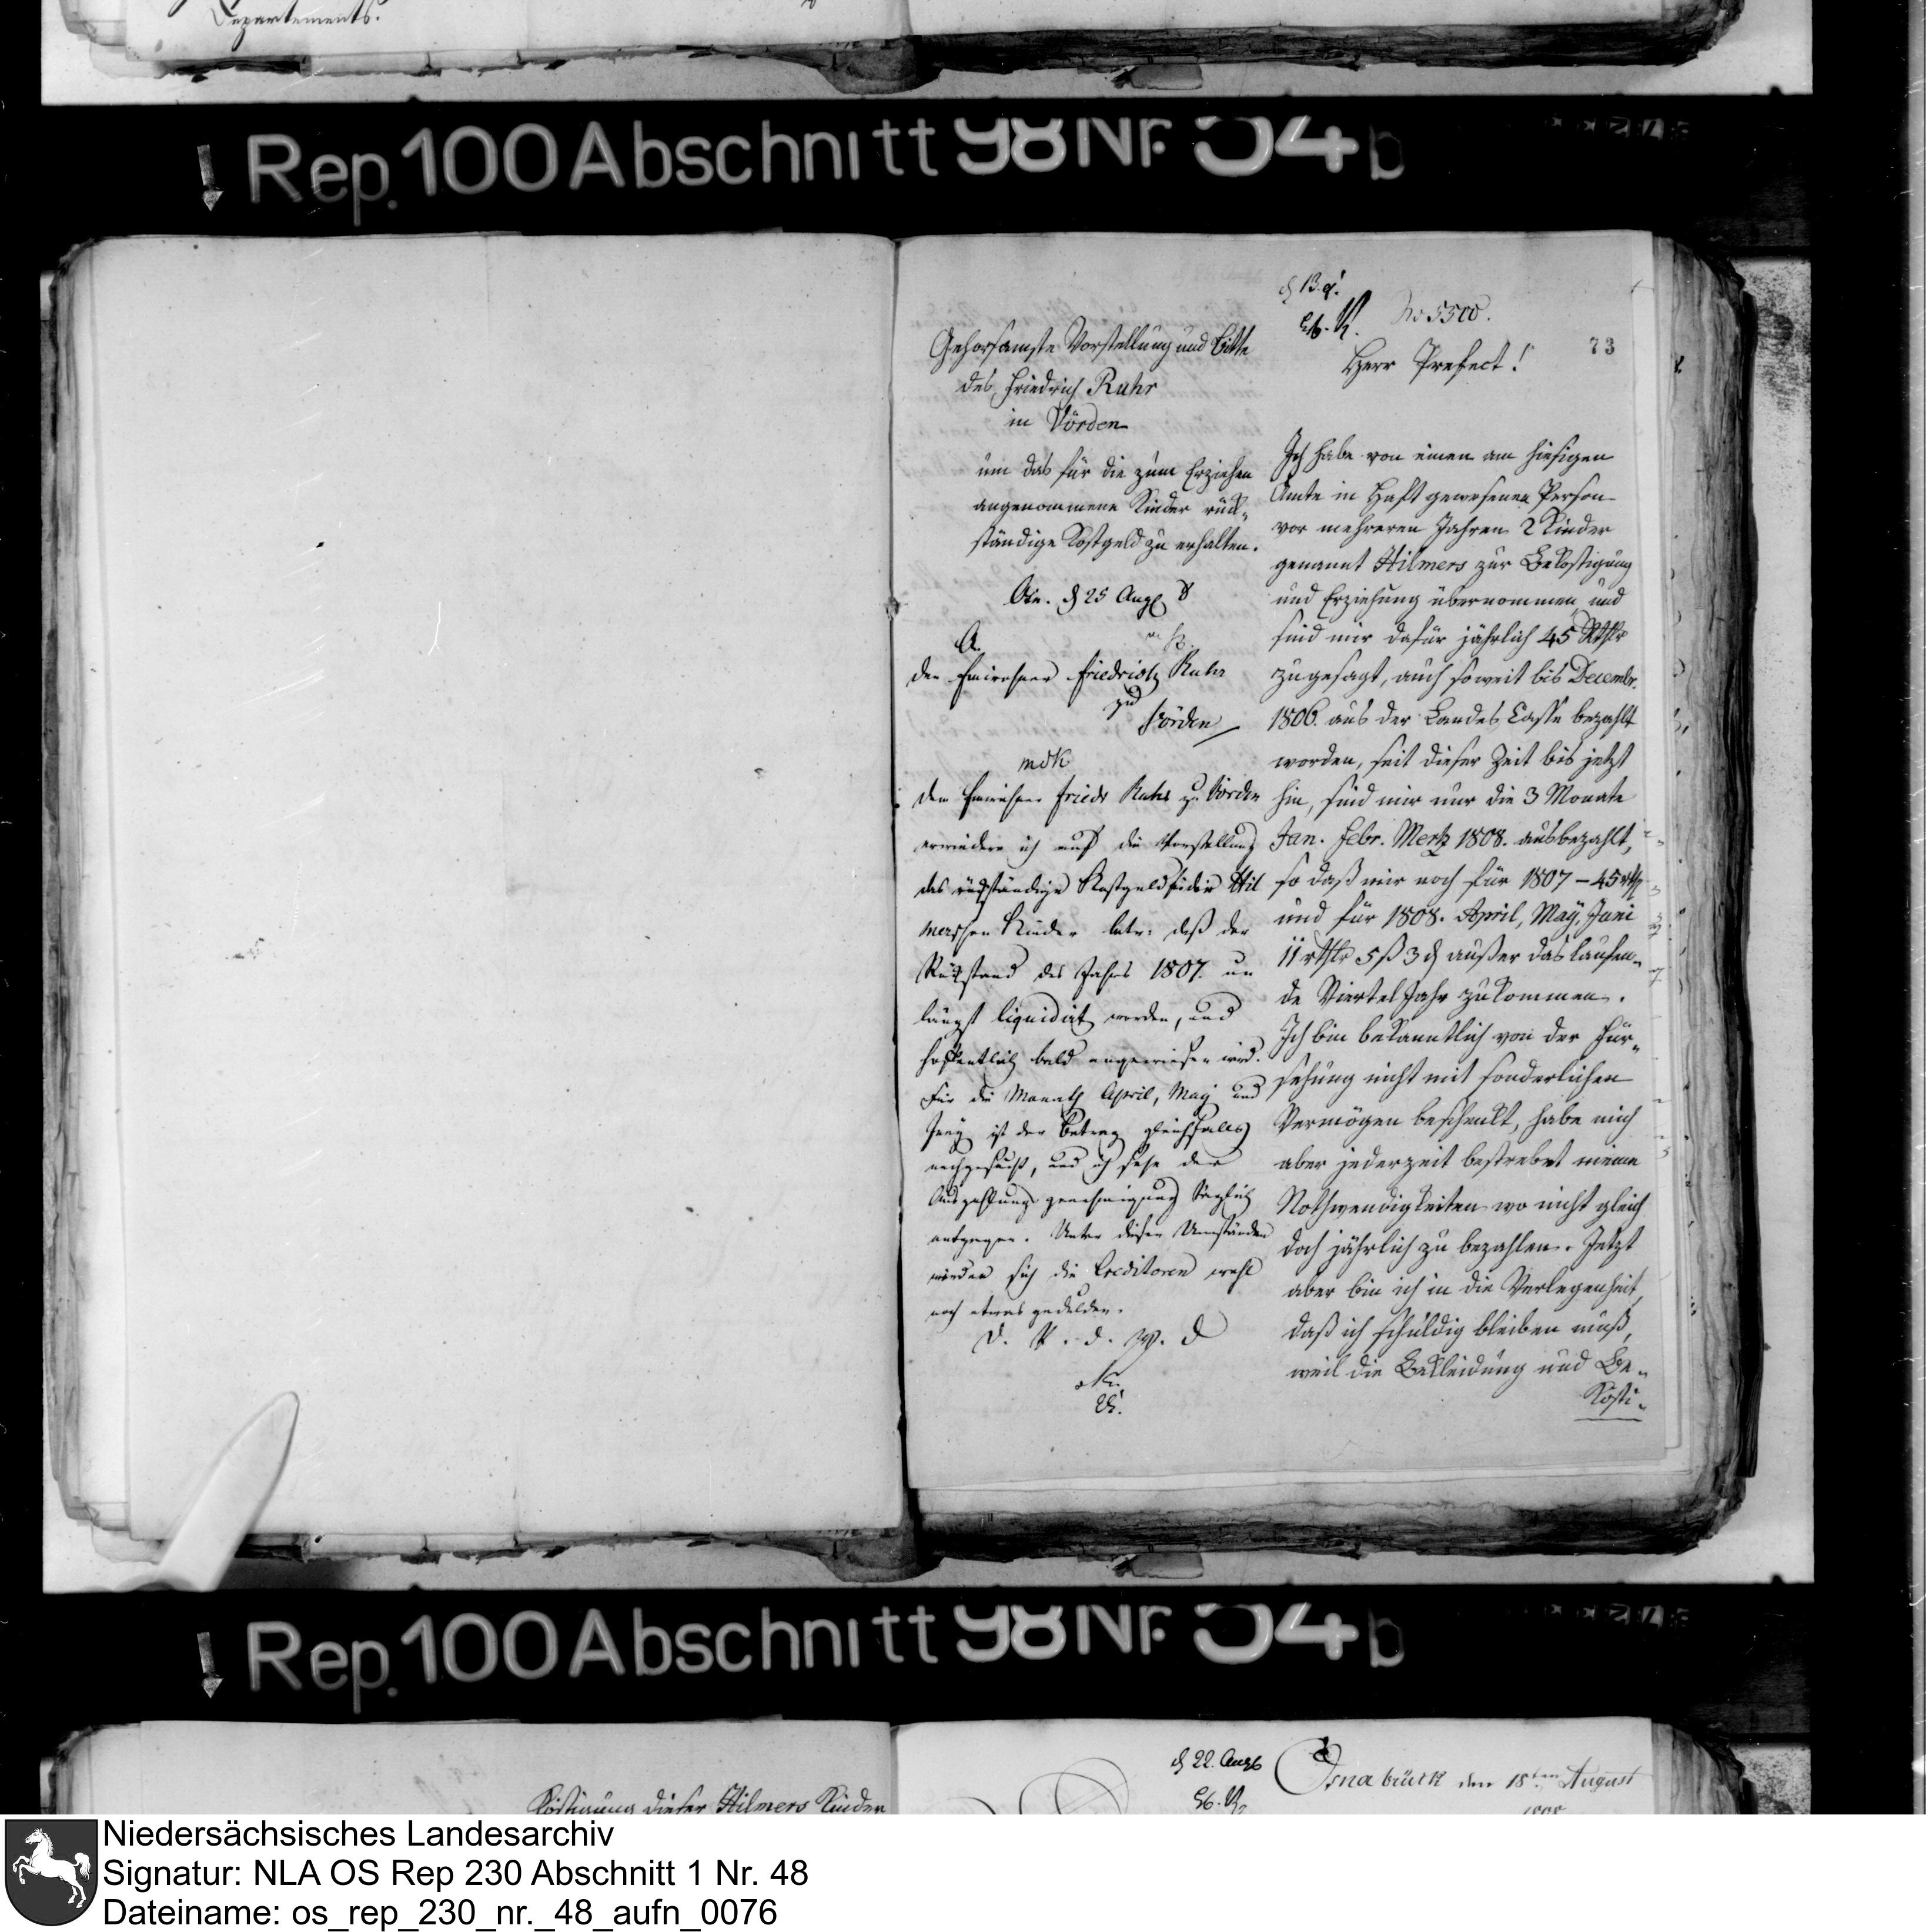 Departements.
Rep. 100 Abschnitt 98 Nr. 54 b
Gehorsamste Vorstellung und Bitte
des Friedrich Ruhr
in Vörden
um das für die zum Erziehen
angenommene Kinder rük-
ständige Kostgeld zu erhalten.
Osn. d 25 Aug 8
A.
den Einwohner Friedrich Ruhr
zu
Vörden
mdk
Dem Einwohner Friedr Ruhr zu Vörden
erwiedere ich auf die Vorstellung
das rückständige Kostgeld für die Hil
merschen Kinder betr. daß der
Rückstand des Jahres 1807. un
längst liquidirt worden, und
hoffentlich bald angewiesen wird.
Für die Monath April, May und
Juny ist der Betrag gleichfalls
nachgesucht, und ich sehe der
Auszahlungs genehmigung täglich
entgegen. Unter diesen Umständen
werden sich die Creditoren wohl
noch etwas gedulden.
D. P. d. W. D
No 5500.
73
Herr Prefect!
Ich habe von einen am hiesigen
Amte in Haft gewesenen Person
vor mehreren Jahren 2 Kinder
genannt Hilmers zur Beköstigung
und Erziehung übernommen und
sind mir dafür jährlich 45 Rthlr
zugesagt, auch soweit bis Decembr.
1806 aus der Landes Casse bezahlt
worden, seit dieser Zeit bis jetzt
hin, sind mir nur die 3 Monate
Jan. Febr. Mertz 1808. ausbezahlt,
so daß mir noch für 1807 – 45 rthlr
und für 1808. April, May, Juni
11 rthlr 5 ß 3 d außer das laufen-
de Viertel Jahr zukommen.
Ich bin bekanntlich von der Für-
sehung nicht mit sonderlichen
Vermögen beschenkt, habe mich
aber jederzeit bestrebet meine
Nothwendigkeiten wo nicht gleich
doch jährlich zu bezahlen. Jetzt
aber bin ich in die Verlegenheit,
daß ich schuldig bleiben muß,
weil die Bekleidung und Be-
kösti-
Rep. 100 Abschnitt 98 Nr. 54 b
köstigung dieser Hilmers Kinder
d 22. Aug
Osnabrück den 18ten August
Niedersächsisches Landesarchiv
Signatur: NLA OS Rep 230 Abschnitt 1 Nr. 48
Dateiname: os_rep_230_nr._48_aufn_0076